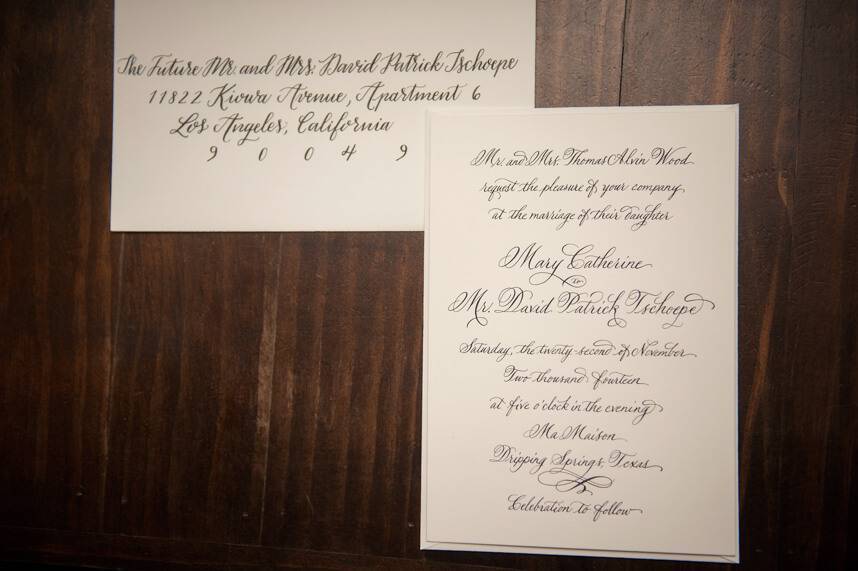 The Future Mr. and Mrs. David Patrick Tschoepe
11822 Kiowa Avenue, Apartment 6
Los Angeles, California
9 0 0 4 9
Mr. and Mrs. Thomas Alvin Wood
request the pleasure of your company
at the marriage of their daughter
Mary Catherine
to
Mr. David Patrick Tschoepe
Saturday, the twenty-second of November
Two thousand fourteen
at five o'clock in the evening
Ma Maison
Dripping Springs, Texas
Celebration to follow